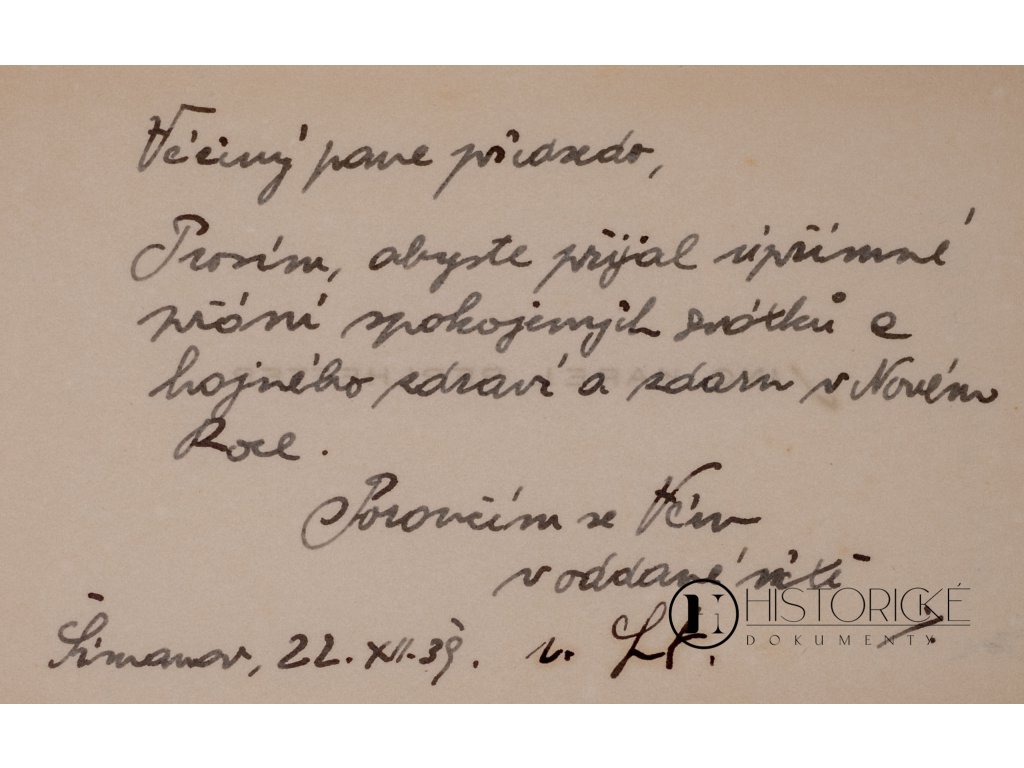 Vážený pane předsedo,
Prosím, abyste přijal upřímné
přání spokojených svátků a
hojného zdraví a zdaru v Novém
Roce.
Poroučím se Vám
v oddané úctě
HISTORICKÉ
DOKUMENTY
Šimanov, 22. XII. 39.